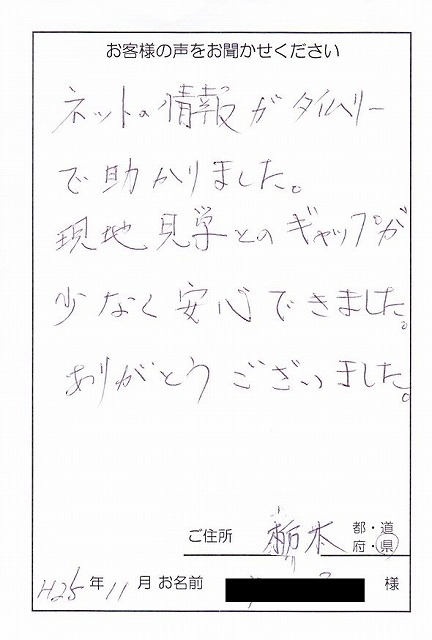 お客様の声をお聞かせください
ネットの情報がタイムリー
で助かりました。
現地見学とのギャップが
少なく安心できました。
ありがとうございました。
ご住所 栃木 都・道
府・県
H25年11月 お名前 様